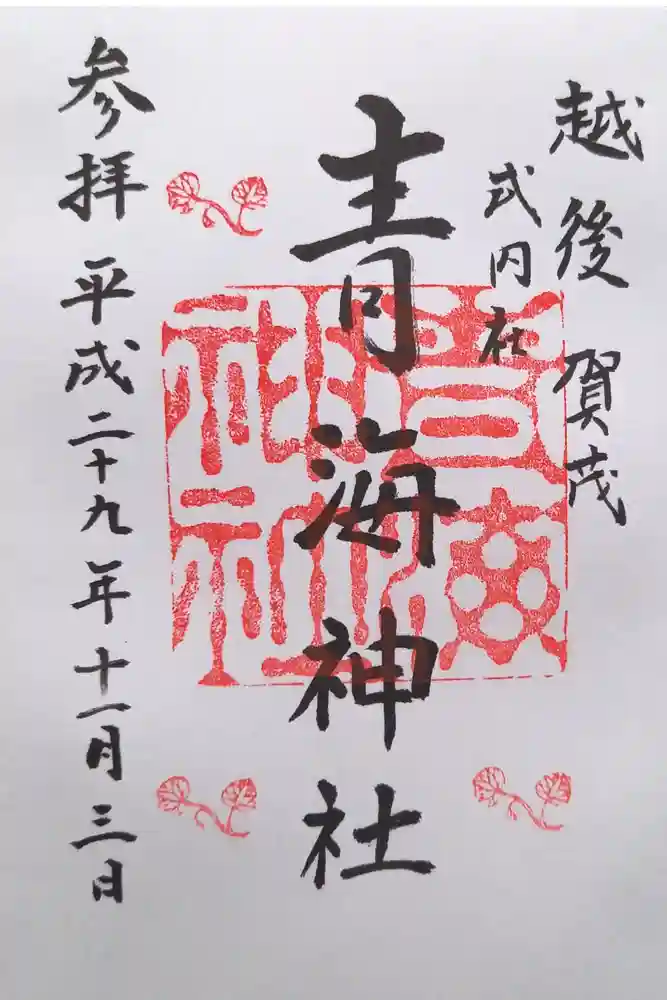 越後賀茂
式内社
青海神社
青海神社
参拝 平成二十九年十一月三日